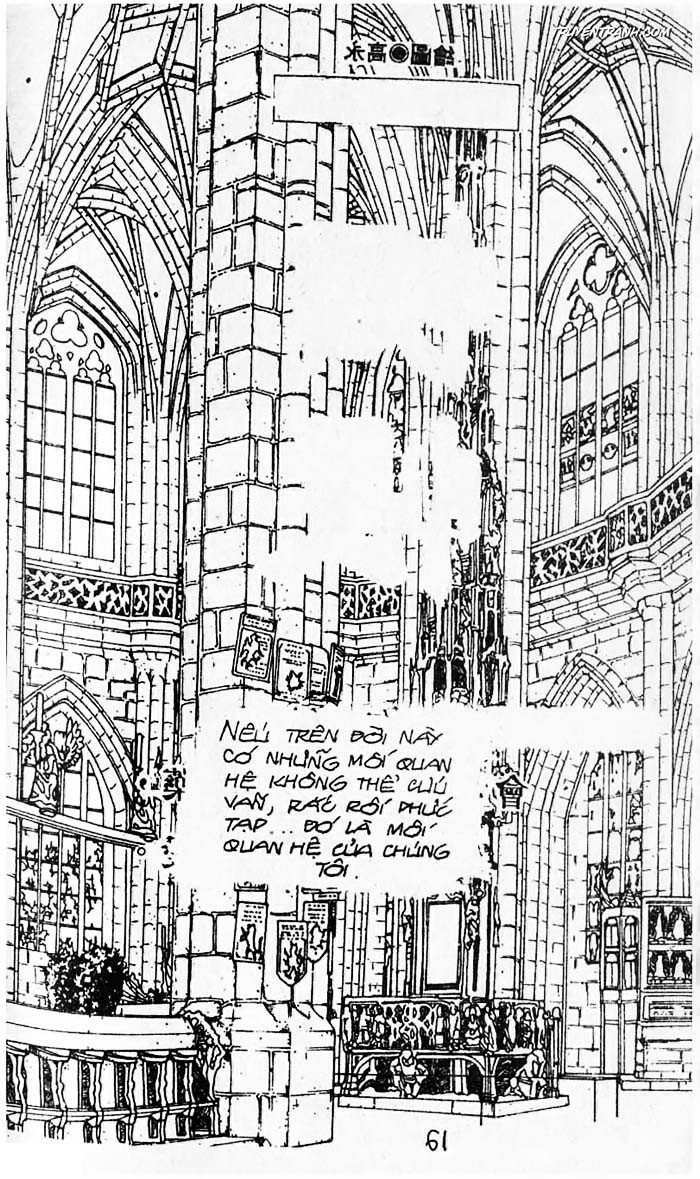 TRUYENTRANH.COM
永高◉圖繪
NẾU TRÊN ĐỜI NÀY
CÓ NHỮNG MỐI QUAN
HỆ KHÔNG THỂ CỨU
VÃN, RẮC RỐI PHỨC
TẠP... ĐÓ LÀ MỐI
QUAN HỆ CỦA CHÚNG
TÔI.
61